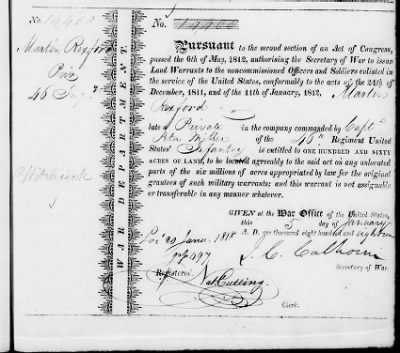 No. 14408
Martin Rexford
46 Infy
WAR DEPARTMENT.
No. 14408
Pursuant to the second section of an Act of Congress,
passed the 6th of May, 1812, authorising the Secretary of War to issue
Land Warrants to the noncommissioned Officers and Soldiers enlisted in
the service of the United States, conformably to the acts of the 24th of
December, 1811, and of the 11th of January, 1812, Martin
Rexford
late a Private in the company commanded by Capt
of the 46th Regiment United
States' Infantry is entitled to ONE HUNDRED AND SIXTY
ACRES OF LAND, to be located agreeably to the said act on any unlocated
parts of the six millions of acres appropriated by law for the original
grantees of such military warrants; and this warrant is not assignable
or transferable in any manner whatever.
GIVEN at the War Office of the United States,
this 5 day of January
A. D. one thousand eight hundred and eighteen
J. C. Calhoun
Secretary of War.
20 Janu. 1818
497
Registered.
Nat. Cutting
Clerk.